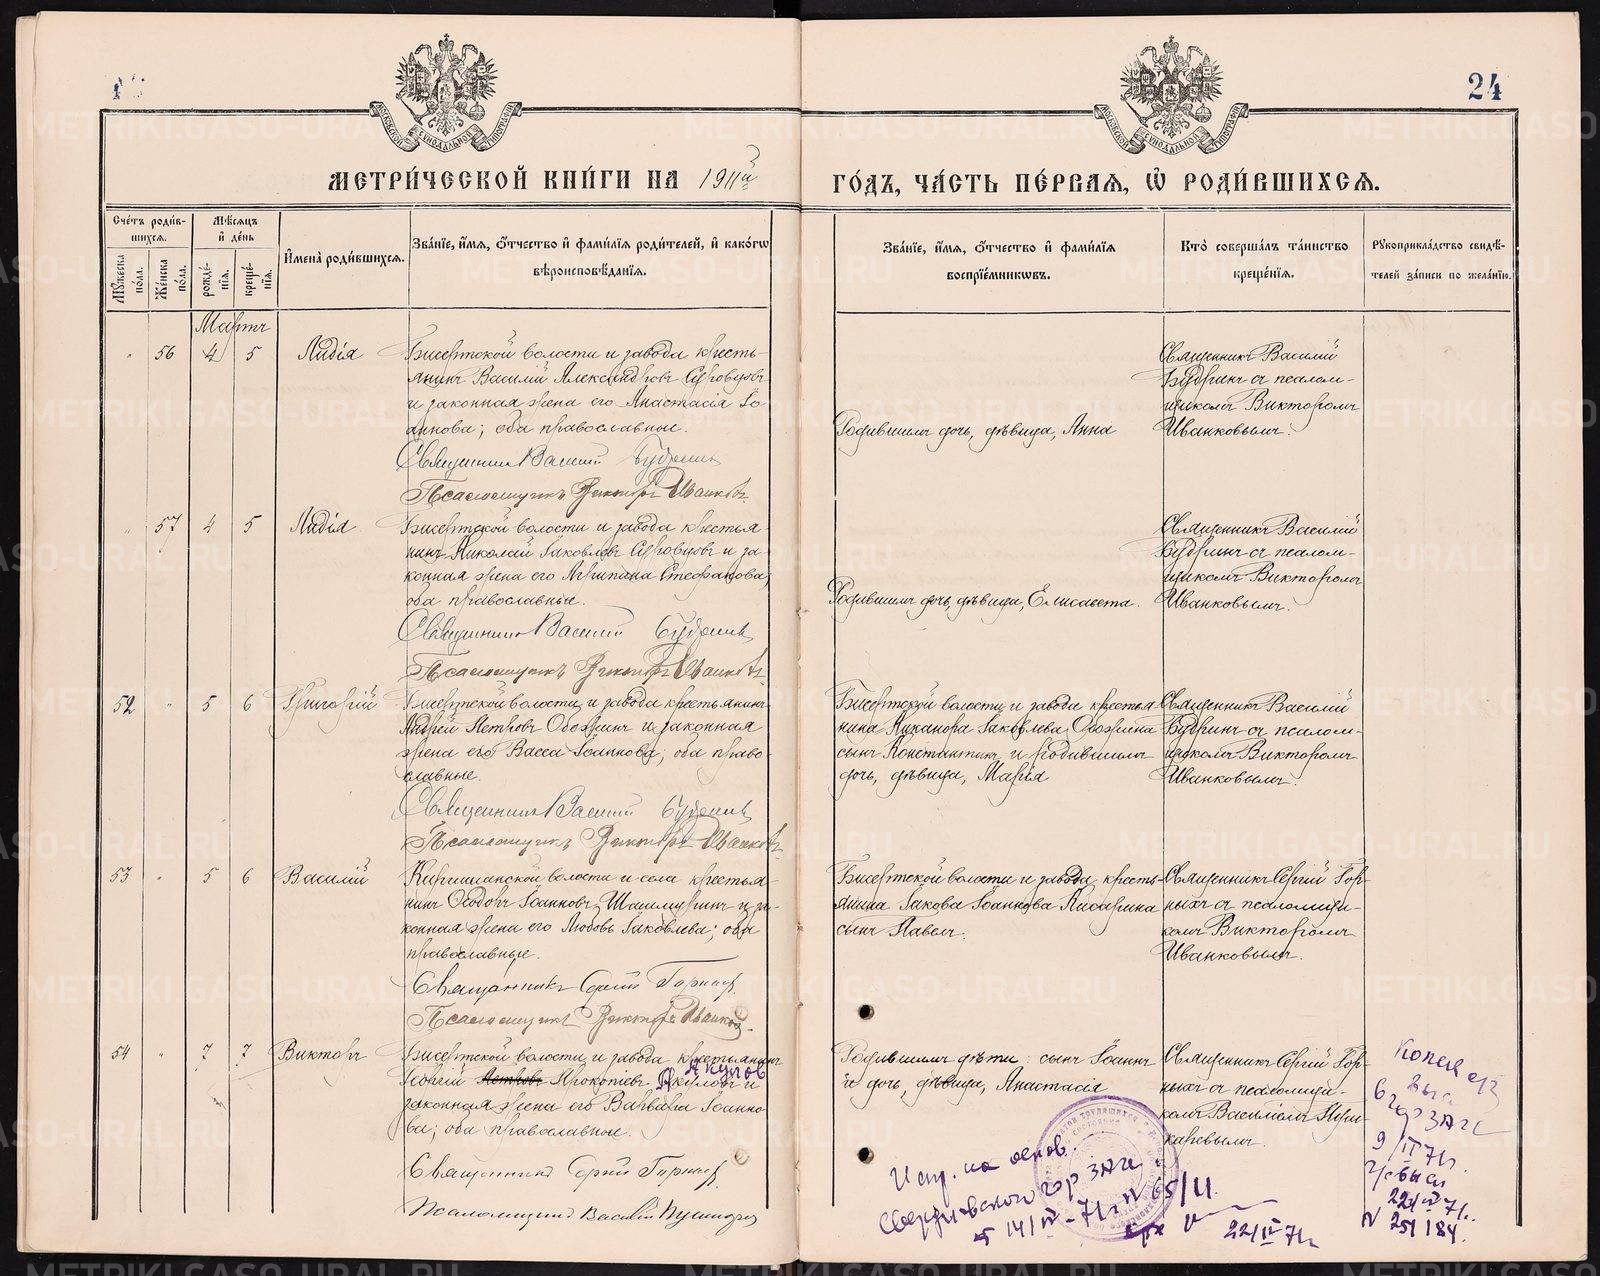 24
МОСКОВСКОЙ СѴНОДАЛЬНОЙ ТИПОГРАФІИ
МОСКОВСКОЙ СѴНОДАЛЬНОЙ ТИПОГРАФІИ
МЕТРИ́ЧЕСКОЙ КНИ́ГИ НА 1911й ГО́ДЪ, ЧА́СТЬ ПЕ́РВАѦ, Ѡ РОДИ́ВШИХСѦ.
Сче́тъ роди́в-
шихсѧ.
Мѣ́сѧцъ
и де́нь
Мꙋ́жеска по́ла.
Же́нска по́ла.
рожде́-
нїѧ.
креще́-
нїѧ.
Имена̀ роди́вшихсѧ.
Зва́нїе, и́мѧ, о́тчество и фами́лїѧ роди́телей, и како́гѡ
вѣроисповѣ́данїѧ.
Зва́нїе, и́мѧ, о́тчество и фами́лїѧ
воспрїе́мникѡвъ.
Кто̀ соверша́лъ та́инство
креще́нїѧ.
Рꙋкоприкла́дство свидѣ́-
телей за́писи по жела́нїю.
Мартъ
" 56 4 5 Лидія
Бисертской волости и завода кресть-
янинъ Василій Александровъ Суровцовъ
и законная жена его Анастасія Іо-
аннова; оба православные.
Священникъ Василій Будринъ
Псаломщикъ Викторъ Иванковъ
Родившихъ дочь, дѣвица, Анна
Священникъ Василій
Будринъ съ псалом-
щикомъ Викторомъ
Иванковымъ.
" 57 4 5 Лидія
Бисертской волости и завода крестья
нинъ Николай Іаковлевъ Суровцовъ и за
конная жена его Агрипина Стефанова,
оба православные.
Священникъ Василій Будринъ
Псаломщикъ Викторъ Иванковъ
Родившихъ дочь, дѣвица, Елисавета.
Священникъ Василій
Будринъ съ псалом-
щикомъ Викторомъ
Иванковымъ.
52 " 5 6 Григорій
Бисертской волости и завода крестьянинъ
Андрей Петровъ Обожинъ и законная
жена его Васса Іоаннова; оба право-
славные.
Священникъ Василій Будринъ
Псаломщикъ Викторъ Иванковъ
Бисертской волости и завода крестья
нина Никанора Іаковлева Обожина
сынъ Константинъ и родившихъ
дочь, дѣвица, Марія
Священникъ Василій
Будринъ съ псалом-
щикомъ Викторомъ
Иванковымъ.
53 " 5 6 Василій
Киргишанской волости и села крестья-
нинъ Ѳеодоръ Іоанновъ Шашмуринъ и за-
конная жена его Любовь Іаковлева; оба
православные.
Священникъ Сергій Горныхъ
Псаломщикъ Викторъ Иванковъ.
Бисертской волости и завода кресть-
янина Іакова Іоаннова Кисарина
сынъ Павелъ.
Священникъ Сергій Гор-
ныхъ съ псаломщи-
комъ Викторомъ
Иванковымъ.
54 " 7 7 Викторъ
Бисертской волости и завода крестьянинъ
Акулов
Георгій Петровъ Прокопіевъ Акуловъ и
законная жена его Варвара Іоанно-
ва; оба православные.
Священникъ Сергій Горныхъ
Псаломщикъ Василій
Родившихъ дѣти: сынъ Іоаннъ
и дочь, дѣвица, Анастасія
Священникъ Сергій Гор-
ныхъ съ псаломщи-
комъ Василіемъ
каревымъ.
Испр. на основ.
Свердловского гор ЗАГС
14/IV-71г N 65/11
22/IV 71г
Копия
выс
в гор ЗАГС
9/III 71г.
22/IV 71г.
N 251/84.